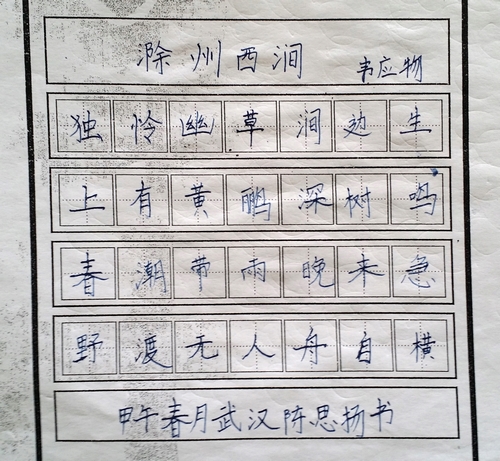 滁州西涧 韦应物
独怜幽草涧边生
上有黄鹂深树鸣
春潮带雨晚来急
野渡无人舟自横
甲午春月武汉陈思扬书